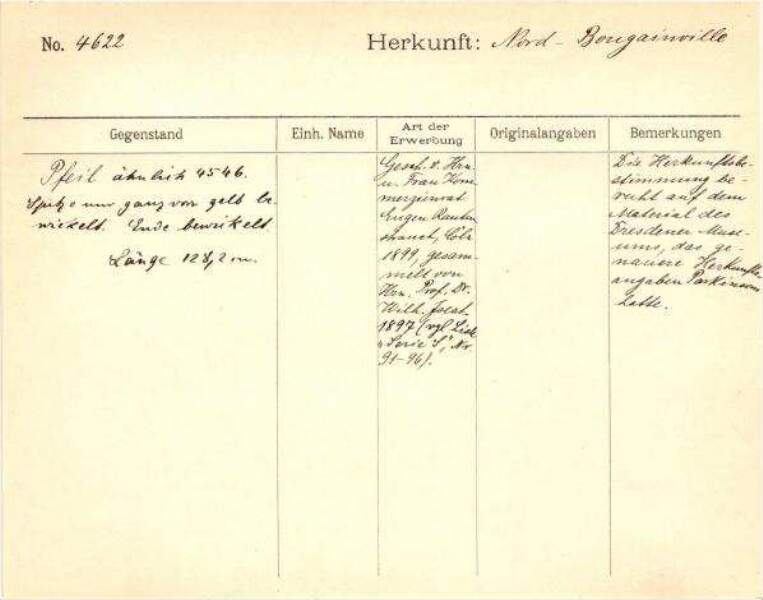 No. 4622
Herkunft: Nord-Bougainville
Gegenstand
Einh. Name
Art der Erwerbung
Originalangaben
Bemerkungen
Pfeil ähnlich 4546.
Spitze nur ganz vorn gelb be-
wickelt. Ende bewickelt.
Länge 128,2 cm.
Gesch. v. Hrn.
u. Frau Kom-
merzienrat
Eugen Rauten
strauch, Cöln
1899, gesam-
melt von
Hrn. Prof. Dr.
Wilh. Joest
1897 (vgl. Liste
"Serie S", Nr.
91-96).
Die Herkunftsbe-
stimmung be-
ruht auf dem
Material des
Dresdener Muse-
ums, das ge-
nauere Herkunfts-
angaben Parkinsons
hatte.